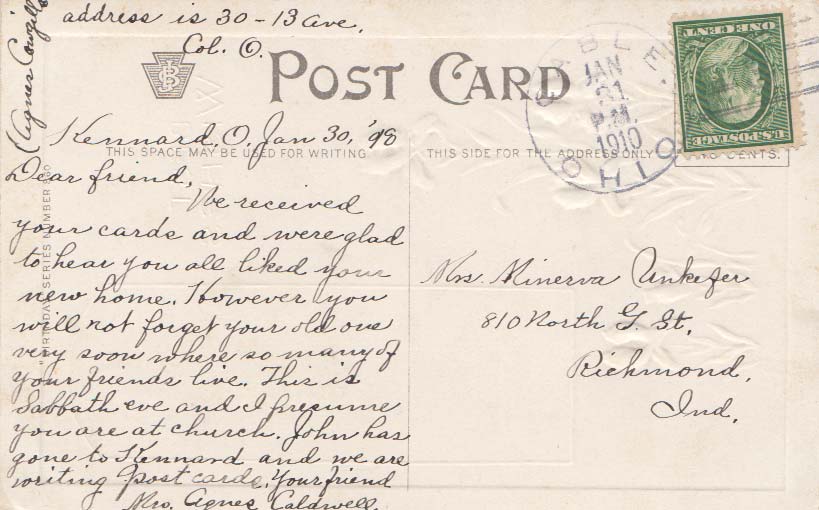 (Agnes Cowgill's
address is 30-13 ave.
Col. O.
POST CARD
CABLE
JAN
31
P.M.
1910
OHIO
U.S. POSTAGE
ONE CENT
Kennard, O. Jan 30, '98
THIS SPACE MAY BE USED FOR WRITING.
THIS SIDE FOR THE ADDRESS ONLY
CENTS.
Dear friend,
We received
your cards and were glad
to hear you all liked your
new home. However you
will not forget your old one
very soon where so many of
your friends live. This is
Sabbath eve and I presume
you are at church. John has
gone to Kennard and we are
writing post cards. Your friend
Mrs. Agnes Caldwell.
Mrs. Minerva Unkefer
810 North G. St.
Richmond,
Ind.
BIRTHDAY SERIES NUMBER